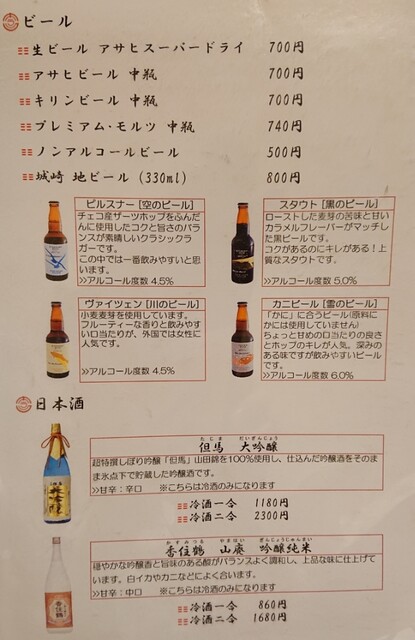 ビール
生ビール アサヒスーパードライ 700円
アサヒビール 中瓶 700円
キリンビール 中瓶 700円
プレミアム・モルツ 中瓶 740円
ノンアルコールビール 500円
城崎 地ビール (330ml) 800円
ピルスナー [空のビール]
チェコ産ザーツホップをふんだ
んに使用したコクと旨さのバラ
ンスが素晴しいクラシックラ
ガーです。
この中では一番飲みやすいと思
います。
>>アルコール度数 4.5%
スタウト [黒のビール]
ローストした麦芽の苦味と甘い
カラメルフレーバーがマッチ
した黒ビールです。
コクがあるのにキレがある！上
質なスタウトです。
>>アルコール度数 5.0%
ヴァイツェン [川のビール]
小麦麦芽を使用しています。
フルーティーな香りと飲みやす
い口当たりが、外国では女性に
人気です。
>>アルコール度数 4.5%
カニビール [雪のビール]
「かに」に合うビール(原料に
かには使用していません)
ちょっと甘めの口当たりの良さ
とホップのキレが人気。深みの
ある味ですが飲みやすいビール
です。
>>アルコール度数 6.0%
日本酒
たじま だいぎんじょう
但馬 大吟醸
超特撰しぼり吟醸「但馬」山田錦を100%使用し、仕込んだ吟醸酒をそのま
ま氷点下で貯蔵した吟醸酒です。
>>甘辛：辛口 ※こちらは冷酒のみになります
冷酒一合 1180円
冷酒二合 2300円
かすみつる やまはい ぎんじょうじゅんまい
香住鶴 山廃 吟醸純米
穏やかな吟醸香と旨味のある酸がバランスよく調和し、上品な味に仕上げて
います。白イカやカニなどによく合います。
>>甘辛：中口 ※こちらは冷酒のみになります
冷酒一合 860円
冷酒二合 1680円
香住鶴